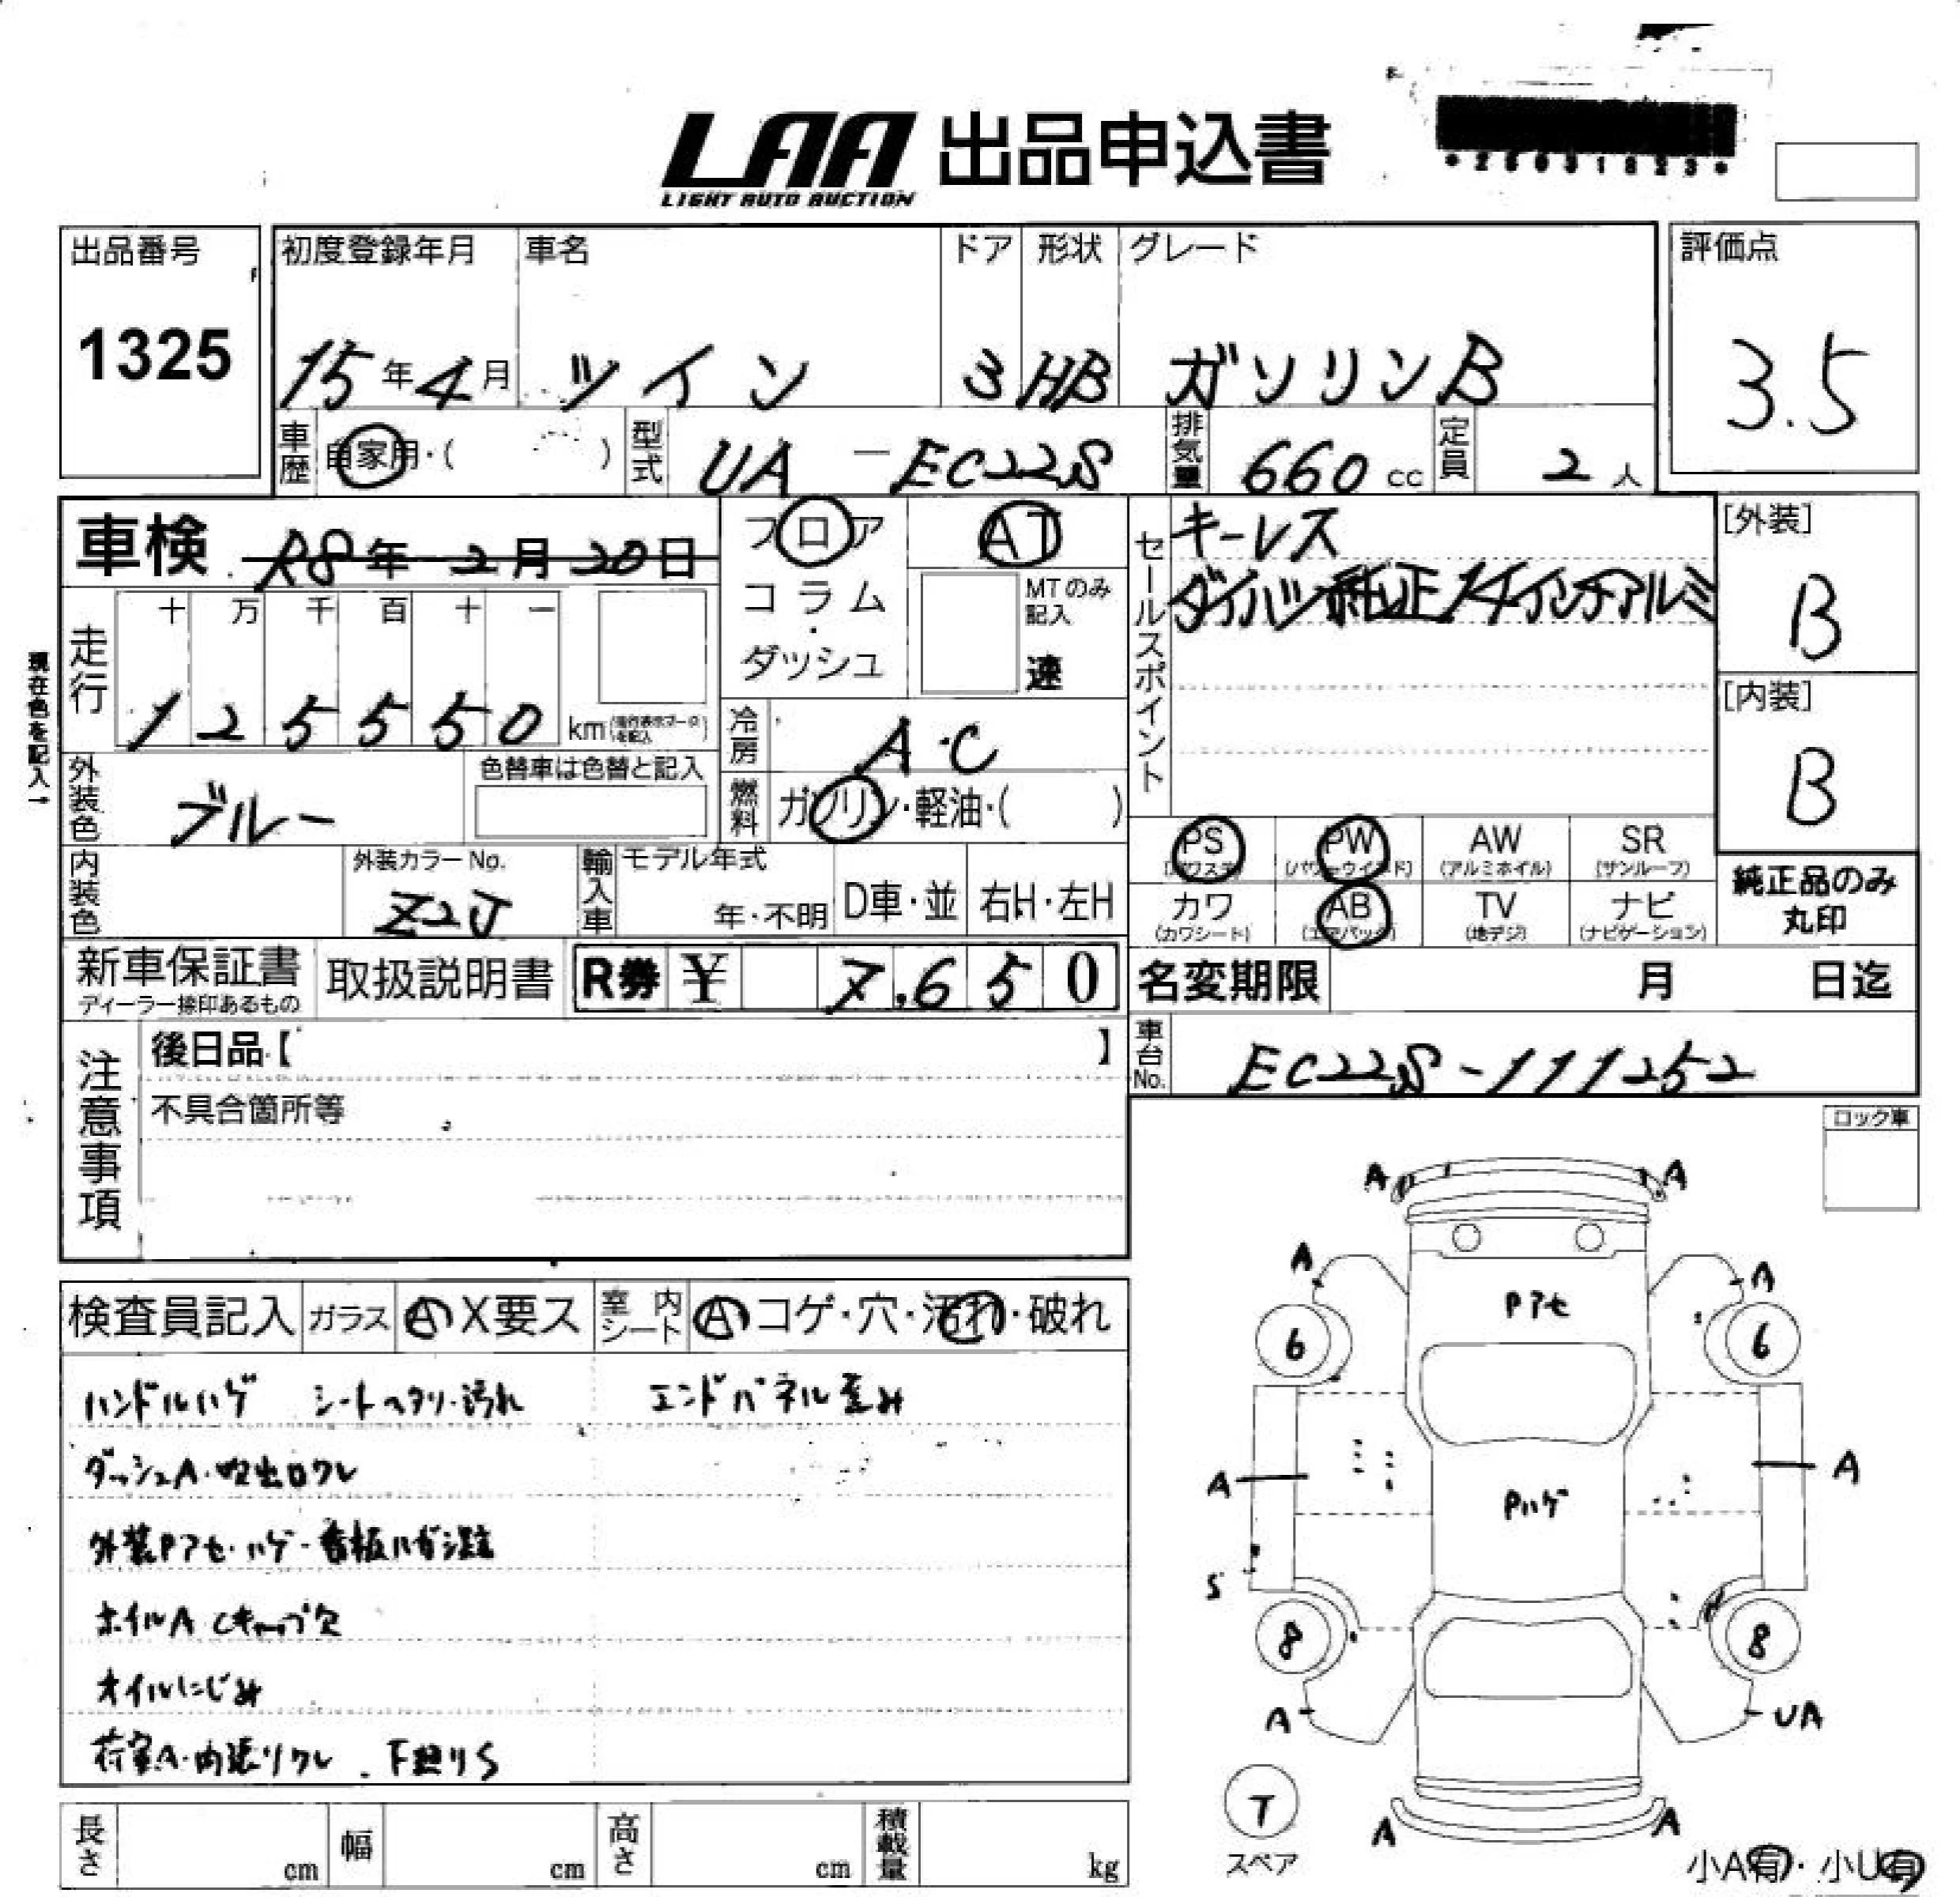 LAA 出品申込書
LIGHT AUTO AUCTION
出品番号 初度登録年月 車名 ドア 形状 グレード 評価点
1325 15年4月 ツイン 3 HB ガソリンB 3.5
車歴 自家用・( ) 型式 UA-EC22S 排気量 660cc 定員 2人
車検 R8年2月20日 フロア AT
コラム・ダッシュ MTのみ記入 速
セールスポイント キーレス
ダイハツ純正14インチアルミ
[外装] B
[内装] B
現在色を記入→
走行 十 万 千 百 十 一
1 2 5 5 5 0 km
冷房 A・C
外装色 ブルー 色替車は色替と記入
燃料 ガソリン・軽油・( )
PS (パワステ) PW (パワーウインド) AW (アルミホイル) SR (サンルーフ)
カワ (カワシート) AB (エアバック) TV (地デジ) ナビ (ナビゲーション)
純正品のみ丸印
内装色 外装カラーNo. Z2J 輸入車 モデル年式 年・不明 D車・並 右H・左H
新車保証書 ディーラー捺印あるもの 取扱説明書 R券 ¥ 7,650
名変期限 月 日迄
車台No. EC22S-111252
注意事項 後日品【 】
不具合箇所等
ロック車
検査員記入 ガラス A X要ス 室内シート A コゲ・穴・汚れ・破れ
ハンドルハゲ シートヘタリ・汚れ エンドパネル歪み
ダッシュA・吹出口ワレ
外装Pアセ・ハゲ・看板ハガシ跡
ホイルA Cキャップ欠
オイルにじみ
荷室A・内張りワレ 下廻りS
A A
A A
Pアセ
6 6
A A
Pハゲ
S
8 8
A UA
T
スペア
A A
小A有・小U有
長さ cm 幅 cm 高さ cm 積載量 kg